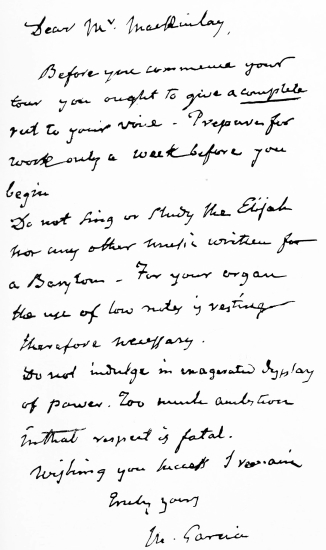 Dear Mr. Mackinlay,
Before you commence your
tour you ought to give a complete
rest to your voice - Prepare for
work only a week before you
begin
Do not sing or study the Elijah
nor any other music written for
a Barytone - For your organ
the use of low notes is resting
therefore necessary.
Do not indulge in exagerated dysplay
of power. Too much ambition
in that respect is fatal.
Wishing you success I remain
Truly yours
M. Garcia